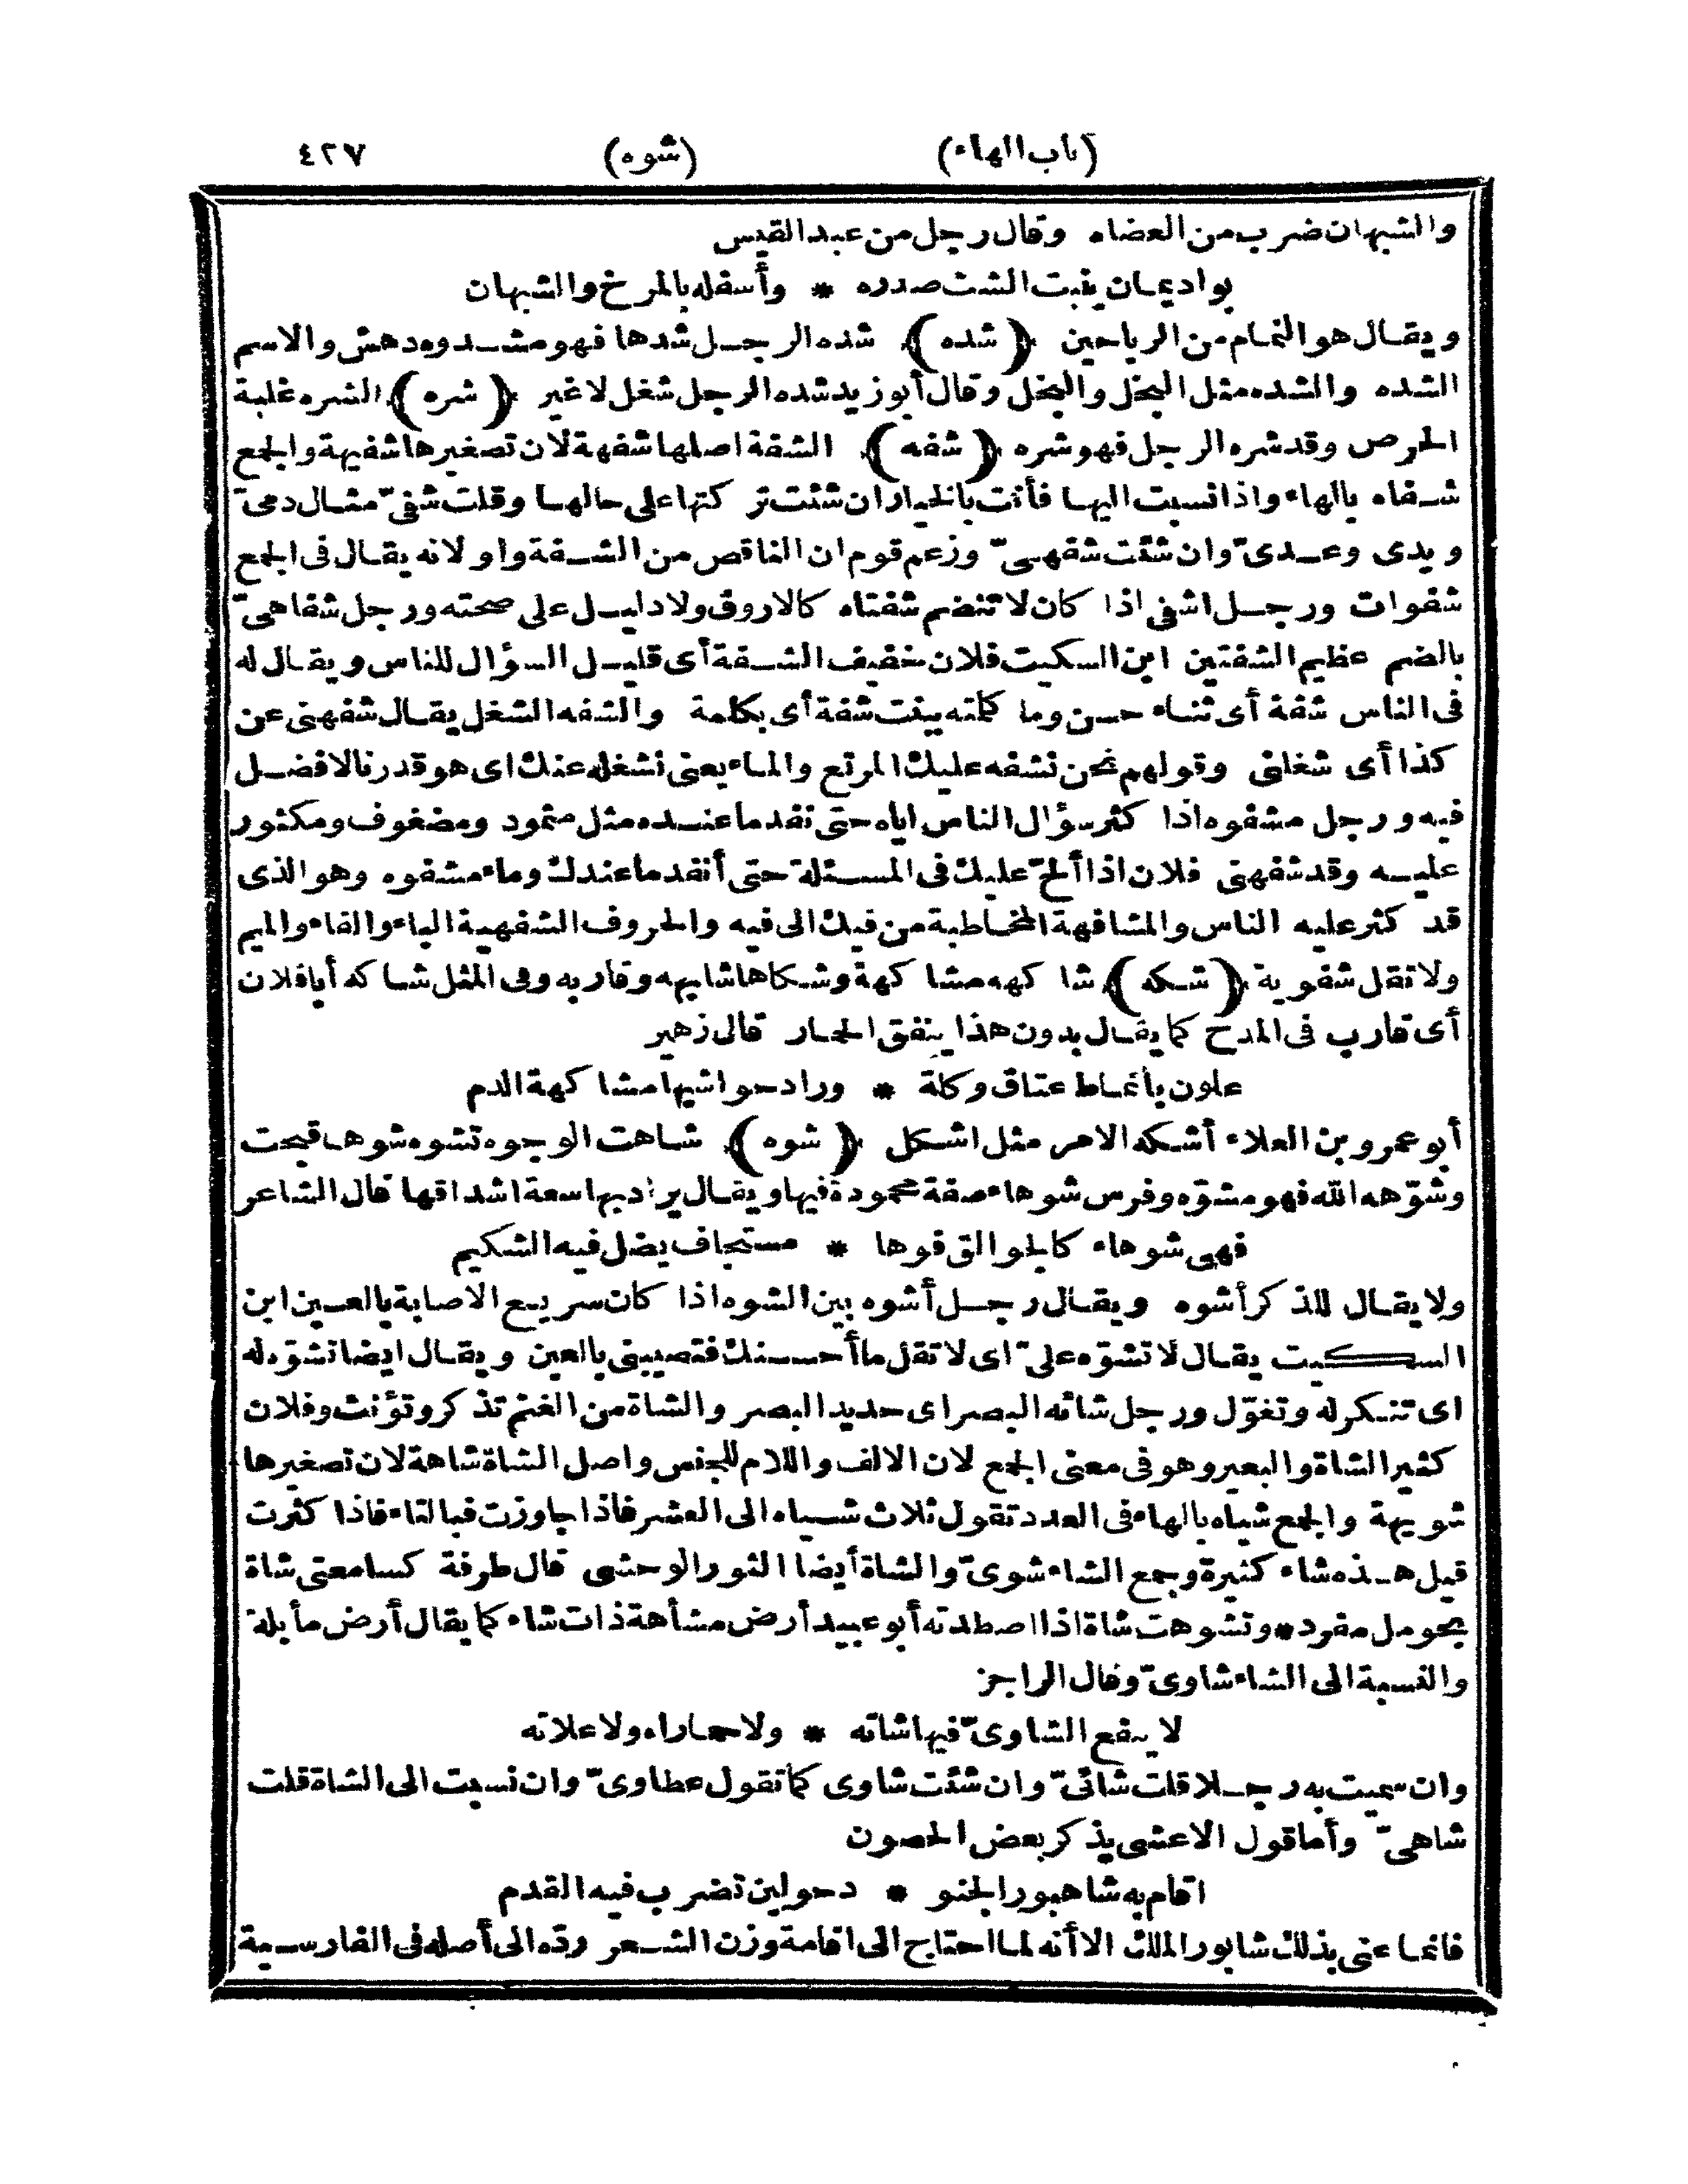 (باب الهاء) (شوه) ٤٢٧
والشبهان ضرب من العضاه وقال رجل من عبد القيس
بواديمان ينبت الشث صدره * وأسفله بالمرخ والشبهان
ويقال هو النمام من الرياحين (شده) شده الرجل شدها فهو مشدوه دهش والاسم
الشده والشده مثل البخل والبخل وقال أبو زيد شده الرجل شغل لا غير (شره) الشره غلبة
الحرص وقد شره الرجل فهو شره (شفه) الشفة اصلها شفهة لان تصغيرها شفيهة والجمع
شفاه بالهاء واذا نسبت اليها فأنت بالخيار ان شئت تركتها على حالها وقلت شفىّ مثال دمىّ
ويدى وعدىّ وان شئت شفهىّ وزعم قوم ان الناقص من الشفة واو لانه يقال فى الجمع
شفوات ورجل اشفى اذا كان لا تنضم شفتاه كالاروق ولا دليل على صحته ورجل شفاهىّ
بالضم عظيم الشفتين ابن السكيت فلان خفيف الشفة أى قليل السؤال للناس ويقال له
فى الناس شفة أى ثناء حسن وما كلمته ببنت شفة أى بكلمة والشفه الشغل يقال شفهنى عن
كذا أى شغلنى وقولهم نحن نشفه عليك المرتع والماء يعنى نشغله عنك اى هو قدرنا لا فضل
فيه ورجل مشفوه اذا كثر سؤال الناس اياه حتى نفد ما عنده مثل مثمود ومضفوف ومكثور
عليه وقد شفهنى فلان اذا ألحّ عليك فى المسئلة حتى أنفد ما عندك وماء مشفوه وهو الذى
قد كثر عليه الناس والمشافهة المخاطبة من فيك الى فيه والحروف الشفهية الباء والفاء والميم
ولا تقل شفوية (شكه) شاكهه مشاكهة وشكاها شابهه وقاربه وفى المثل شاكه أبا فلان
أى قارب فى المدح كما يقال بدون هذا ينفق الحمار قال زهير
علون بأنماط عتاق وكلة * وراد حواشيها مشاكهة الدم
أبو عمرو بن العلاء أشكه الامر مثل اشكل (شوه) شاهت الوجوه تشوه شوها قبحت
وشوّهه الله فهو مشوّه وفرس شوهاء صفة محمودة فيها ويقال يراد بها سعة اشداقها قال الشاعر
فهى شوهاء كالجوالق فوها * مستجاف يضل فيه الشكيم
ولا يقال للذكر أشوه ويقال رجل أشوه بين الشوه اذا كان سريع الاصابة بالعين ابن
السكيت يقال لا تشوّه علىّ اى لا تقل ما أحسنك فتصيبنى بالعين ويقال ايضا تشوّه له
اى تنكر له وتغوّل ورجل شائه البصر اى حديد البصر والشاة من الغنم تذكر وتؤنث وفلان
كثير الشاة والبعير وهو فى معنى الجمع لان الالف واللام للجنس واصل الشاة شاهة لان تصغيرها
شويهة والجمع شياه بالهاء فى العدد تقول ثلاث شياه الى العشر فاذا جاوزت فبالتاء فاذا كثرت
قيل هذه شاء كثيرة وجمع الشاء شوىّ والشاة أيضا الثور الوحشى قال طرفة كسامعتى شاة
بحومل مفرد * وتشوهت شاة اذا اصطدته أبو عبيد أرض مشأهة ذات شاء كما يقال أرض مأبلة
والنسبة الى الشاء شاوىّ وقال الراجز
لا ينفع الشاوىّ فيها شاته * ولا حماراه ولا علاته
وان سميت به رجلا قلت شائىّ وان شئت شاوى كما تقول عطاوىّ وان نسبت الى الشاة قلت
شاهىّ وأما قول الاعشى يذكر بعض الحصون
اقام به شاهبور الجنو * د حولين تضرب فيه القدم
فانما عنى بذلك شابور الملك الا أنه لما احتاج الى اقامة وزن الشعر ردّه الى أصله فى الفارسية